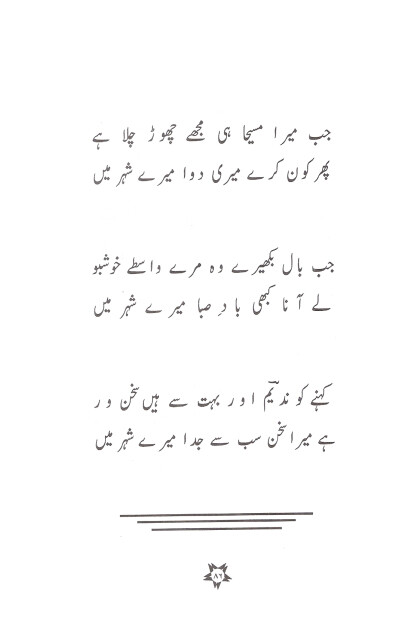 جب میرا مسیحا ہی مجھے چھوڑ چلا ہے
پھر کون کرے میری دوا میرے شہر میں
جب بال بکھیرے وہ مرے واسطے خوشبو
لے آنا کبھی بادِ صبا میرے شہر میں
کہنے کو ندیمؔ اور بہت سے ہیں سخن ور
ہے میرا سخن سب سے جدا میرے شہر میں
۸۶